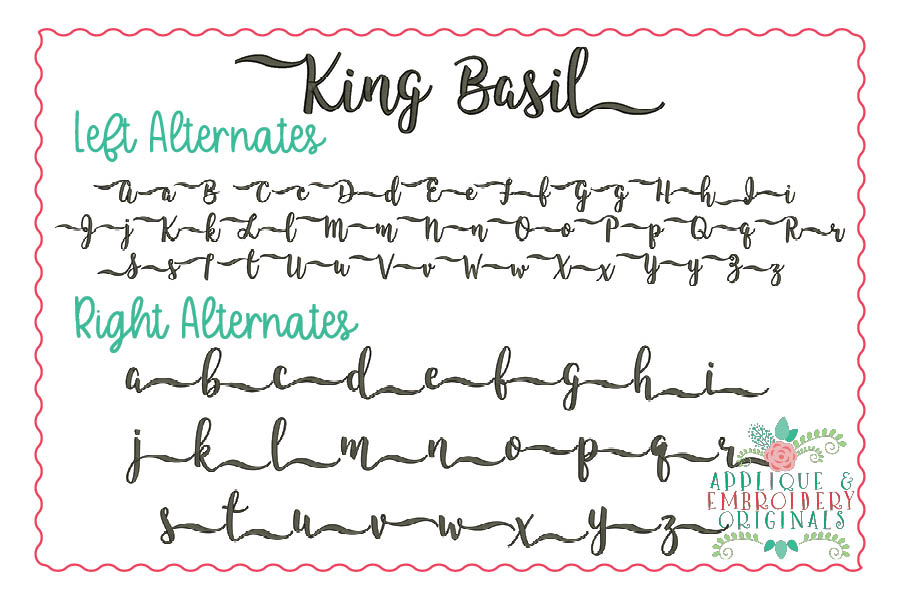 King Basil
Left Alternates
A a B C c D d E e F f G g H h I i
J j K k L l M m N n O o P p Q q R r
S s T t U u V v W w X x Y y Z z
Right Alternates
a b c d e f g h i
j k l m n o p q r
s t u v w x y z
APPLIQUE &
EMBROIDERY
ORIGINALS